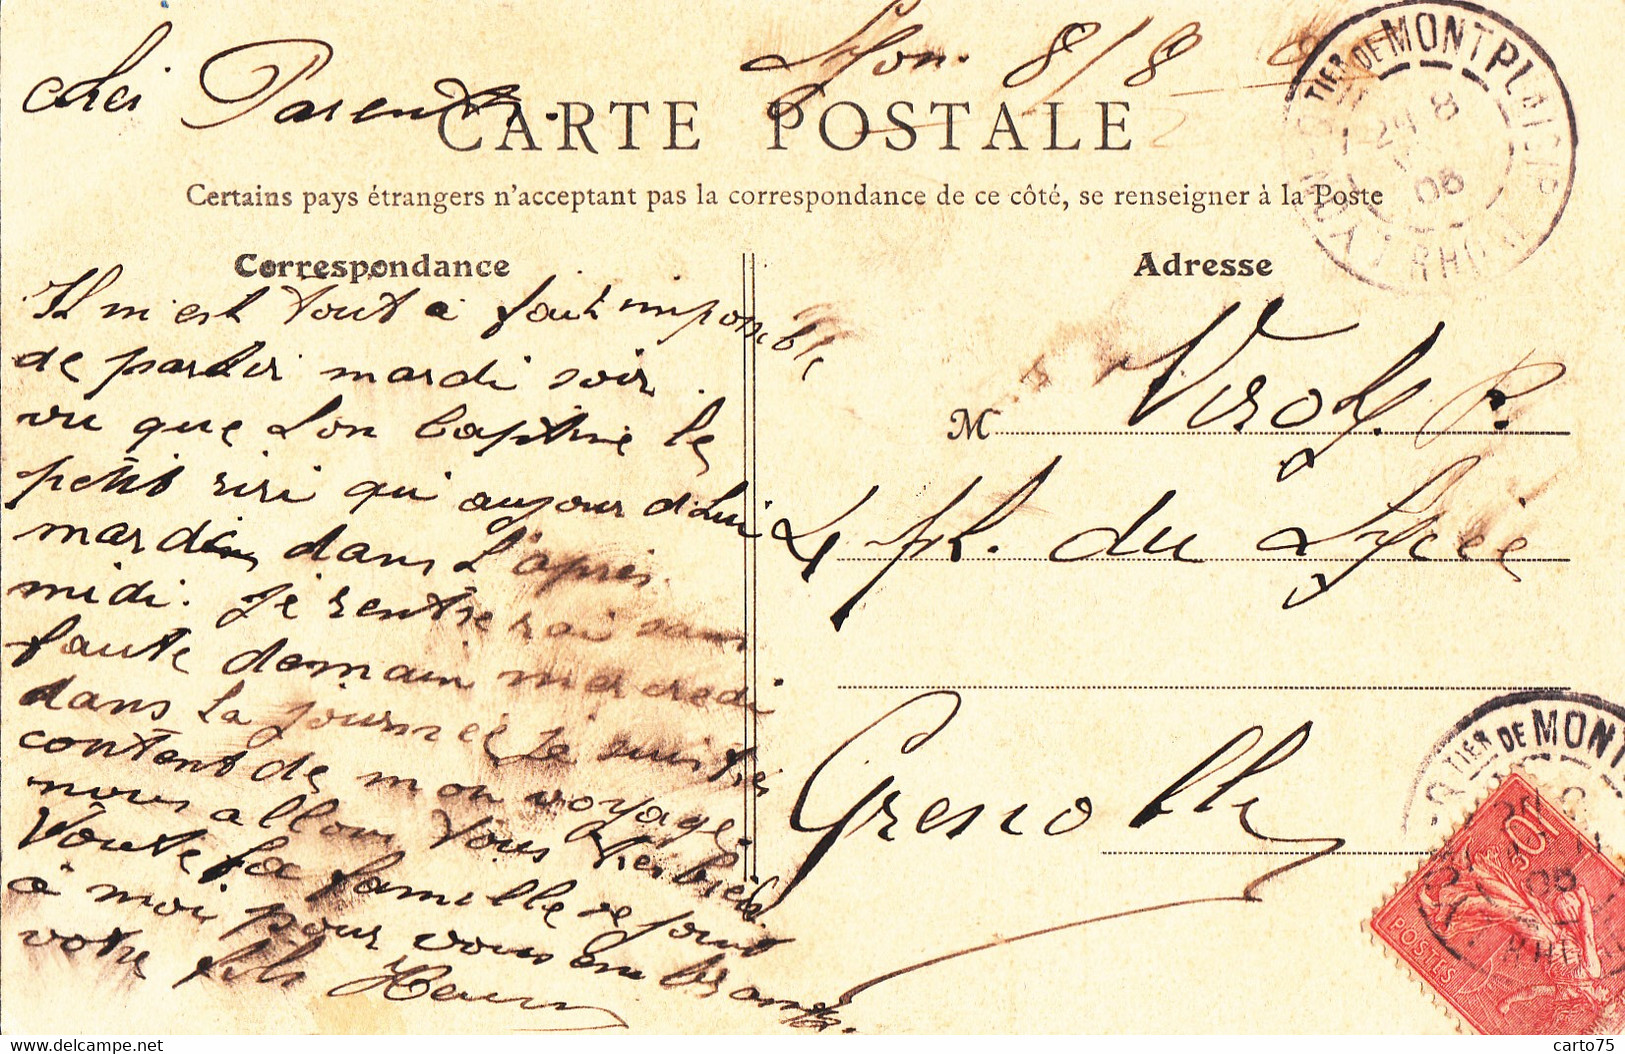 Lyon. 8/8
cher Parents.
CARTE POSTALE
Certains pays étrangers n'acceptant pas la correspondance de ce côté, se renseigner à la Poste
Correspondance
Il m'est tout à fait impossible
de partir mardi soir.
vu que l'on baptise le
petit riri qui aujourd'hui
mardi dans l'après
midi. Je rentrerai sans
faute demain mercredi
dans la journée Je suis très
content de mon voyage
nous allons tous très bien
Toute la famille se joint
à moi pour vous embrasser.
votre fils Henri
Adresse
M Viroly. P.
4 Pl. du Lycée
Grenoble
QUARTIER DE MONTPLAISIR
LYON RHONE
8
05
QUARTIER DE MONT
05
RH
POSTES
10
carto75